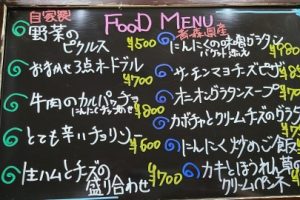 FOOD MENU
自家製
野菜の
ピクルス
¥500
おまかせ3点オードブル
¥700
牛肉のカルパッチョ
にんにくチップのせ
¥800
とても辛いチョリソー
¥600
生ハムとチーズの
盛り合わせ
¥700
青森県産
にんにくの味噌グラタン
バケット添え
¥980
サーモンマヨチーズピザ
オニオングラタンスープ
カボチャとクリームチーズのグラ
にんにく炒めご飯
カキとほうれん草の
クリームペンネ